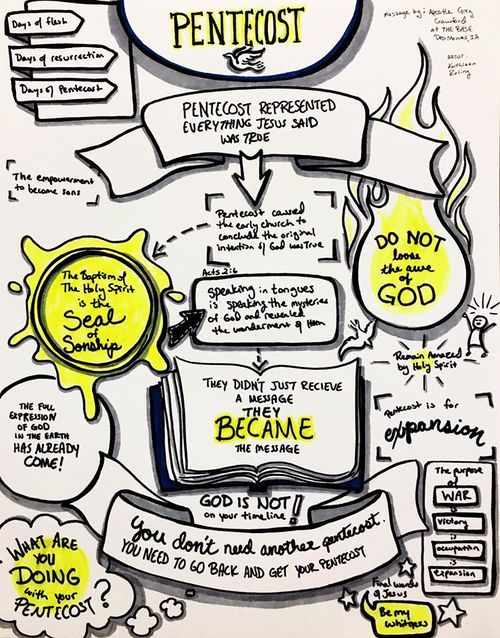 Days of flesh
Days of resurrection
Days of Pentecost
PENTECOST
Message by: Apostle Greg
Crawford
at THE BASE
Des Moines, IA
ARTIST:
Kathleen
Roling
PENTECOST REPRESENTED
EVERYTHING JESUS SAID
WAS TRUE
The empowerment
to become sons
Pentecost caused
the early church to
conclude the original
intention of God was True
DO NOT
loose
the awe
of
GOD
The Baptism of
The Holy Spirit
is the
Seal
of
Sonship
Acts 2:6
Speaking in tongues
is speaking the mysteries
of God and revealed
the wonderment of Him
Remain Amazed
by Holy Spirit
THEY DIDN'T JUST RECIEVE
A MESSAGE
THEY
BECAME
THE MESSAGE
Pentecost is for
expansion
THE FULL
EXPRESSION
OF GOD
IN THE EARTH
HAS ALREADY
COME!
GOD IS NOT
on your timeline!
The purpose
of
WAR
is
victory
is
occupation
is
expansion
You don't need another pentecost.
YOU NEED TO GO BACK AND GET YOUR PENTECOST
WHAT ARE
YOU
DOING
with your
PENTECOST?
Final words
of Jesus
Be my
whitness